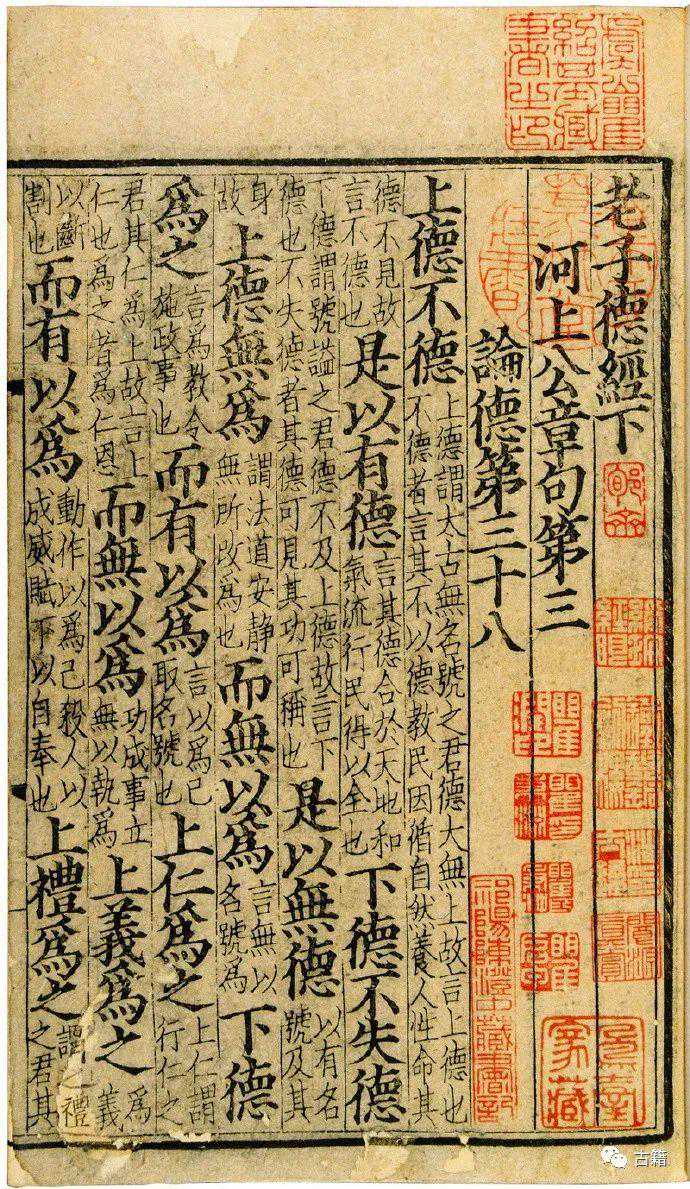 老子德經下
河上公章句第三
論德第三十八
上德不德上德謂太古無名號之君德大無上故言上德也不德者言其不以德教民因循自然養人性命其
德不見故言不德也是以有德言其德合於天地和氣流行民得以全也下德不失德
下德謂號謚之君德不及上德故言下德也不失德者其德可見其功可稱也是以無德以有名號及其
身故上德無爲謂法道安静無所改爲也而無以爲言無以名號爲下德
爲之言爲教令施政事也而有以爲言以爲己取名號也上仁爲之上仁謂行仁之
君其仁爲上故言上仁也爲之者爲仁恩而無以爲功成事立無以執爲上義爲之爲義
以斷割也而有以爲動作以爲己殺人以成威賊下以自奉也上禮爲之謂上禮之君其
祁陽陳澄中藏書記
古籍